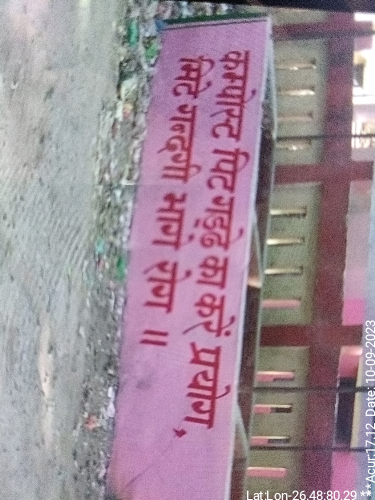 कम्पोस्ट पिट गड्ढे का करें प्रयोग,
मिटे गन्दगी भागे रोग ॥
Lat:Lon-26.48:80.29
***Acur:17.12 Date: 10-09-2023